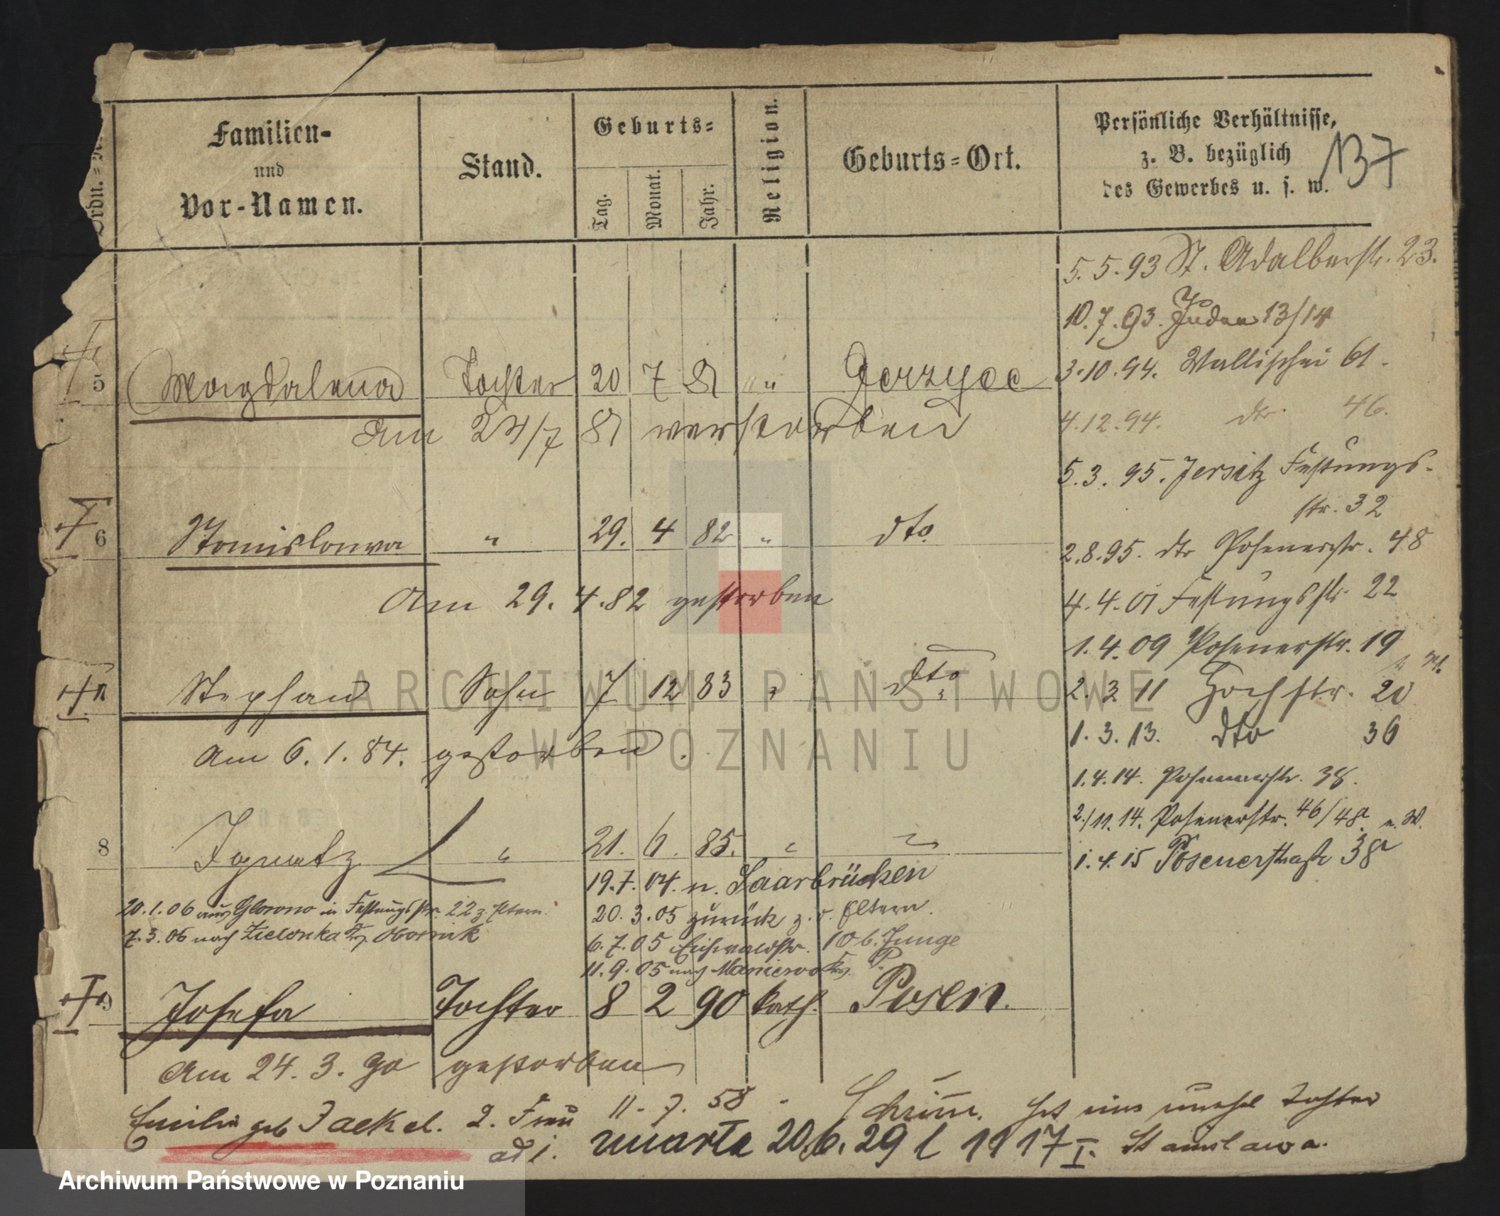 Ordn.-N.
Familien-
und
Vor-Namen.
Stand.
Geburts-
Tag.
Monat.
Jahr.
Religion.
Geburts-Ort.
Persönliche Verhältnisse,
z. B. bezüglich
des Gewerbes u. s. w.
137
5.5.93 St. Adalbertstr. 23.
10.7.93. Juden 13/14
5 Magdalena Tochter 20 7 81 " Gorzyce
3.10.94. Wallischei 61.
am 24/7 81 verstorben
4.12.94. dto. 46.
5.3.95. Jersitz Festungs-
str. 32
6 Stanislawa " 29. 4 82 " dto
2.8.95. dto Posenerstr. 48
am 29.4.82 gestorben
4.4.01 Festungsstr. 22
1.4.09 Posenerstr. 19
7 Stephan Sohn 7 12 83 " dto
2.3.11 Hochstr. 20
1.3.13. dto 36
am 6.1.84. gestorben
1.4.14. Posenerstr. 38.
2./11.14. Posenerstr. 46/48a n. W.
8 Ignatz " 21. 6. 85. " "
1.4.15 Posenerstraße 38a
19.7.04. n. Saarbrücken
20.1.06 aus Glowno in Festungsstr. 22 z. Eltern.
20.3.05 zurück z. d. Eltern.
7.3.06 nach Zielonka Kr. Obornik
6.7.05 Eichwaldstr. 10 b. Junge
11.9.05 nach
9 Josefa Tochter 8 2 90 kath. Posen.
am 24.3.90 gestorben
Emilie geb Jaekel. 2. Frau 11.7.58. Schrimm. hat eine unehel Tochter
ad 1. umarła 20/6. 29 l 1117 I. Stanislawa.
ARCHIWUM PAŃSTWOWE
W POZNANIU
Archiwum Państwowe w Poznaniu